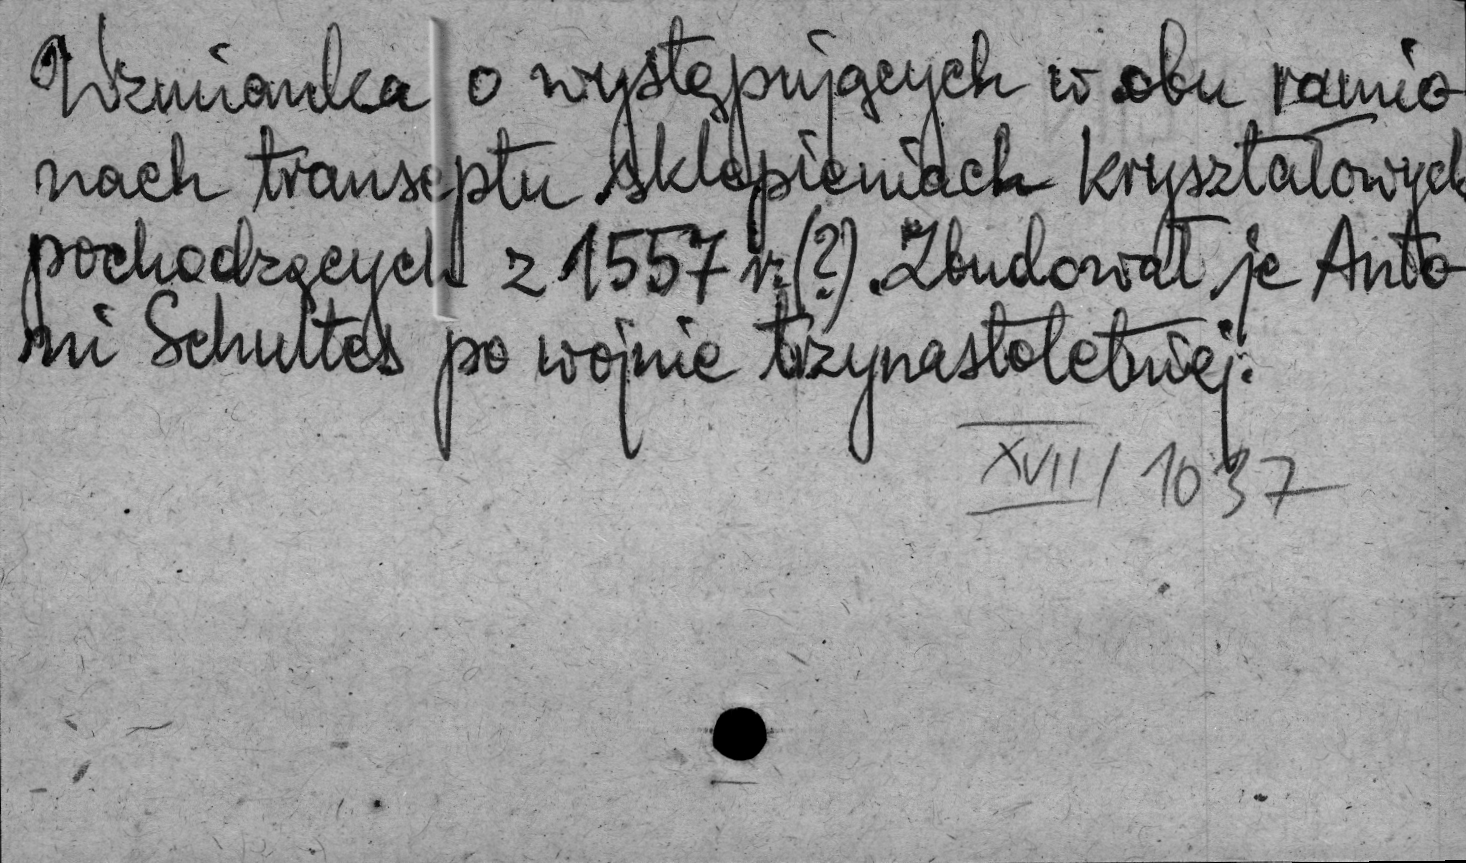 Wzmianka o występujących w obu ramio-
nach transeptu sklepieniach kryształowych
pochodzących z 1557 r. (?). Zbudował je Anto-
ni Schultes po wojnie trzynastoletniej.
XVII / 1037